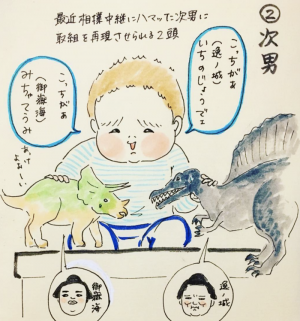 ②次男
最近相撲中継にハマッた次男に
取組を再現させられる2頭
こっちがぁ
(逸ノ城)
いちのじょうでェ
こっちがぁ
(御嶽海)
みちゃてうみ
あっけ
よぉ〜い
御嶽海
逸ノ城